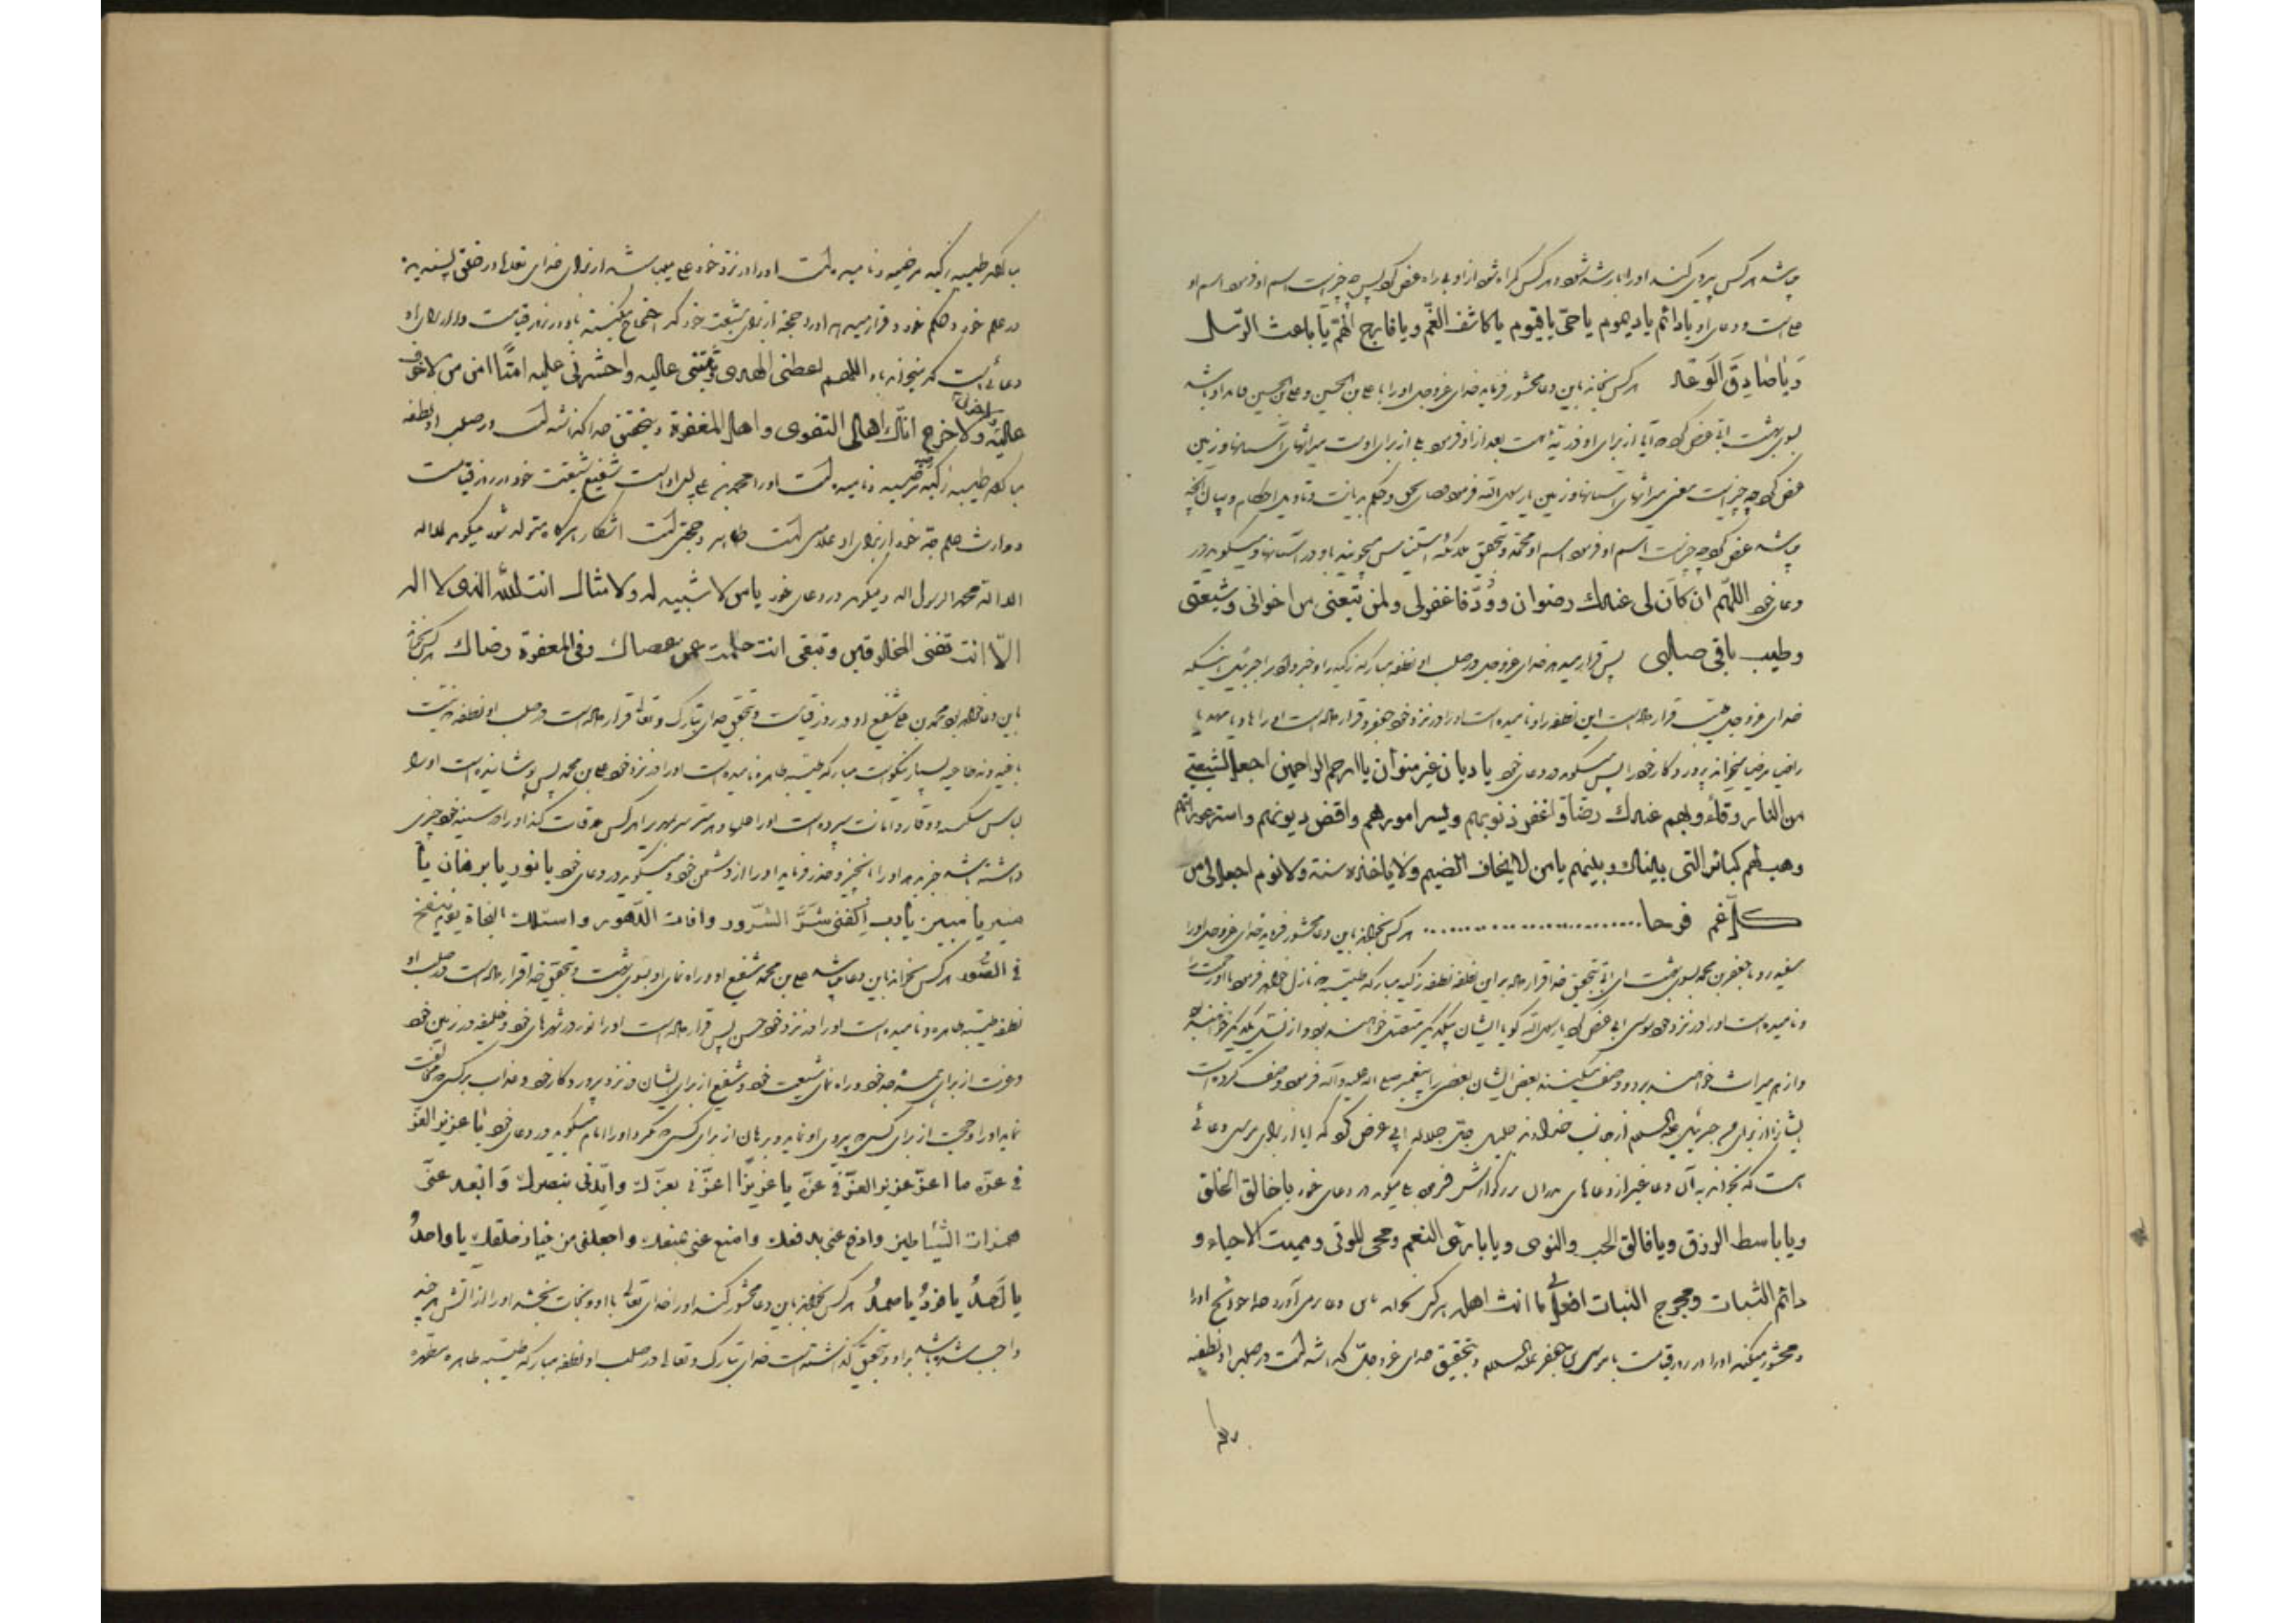 باشد هر کس پیروی کند او را با رشد شود و هر کس گمراه شود از او بی راه عرض کرد پس چه چیز است اسم او فرمود اسم او
علی است و دعای او یا دائم یا دیموم یا حیّ یا قیوم یا کاشف الغّم و یا فارج الهّم یا باعث الرّسل
وَ یا صٰادِقَ الَوعَد هر کس بخواند باین دعا محشور فرماید خدای عزوجل او را با علی بن الحسین و علی بن الحسین قائد او باشد
بسوی بهشت ابی عرض کرد آیا از برای او ذریّه است بعد از او فرمود بلی از برای اوست میراثهای آسمانها و زمین
عرض کرد چه چیز است معنی میراثهای آسمانها و زمین یا رسول الله فرمود قضای بحق و حکم بدیانت و تاویل احکام و بیان آنچه
باشد عرض کرد چه چیز است اسم او فرمود اسم او محمّد و بتحقیق ملائکه استیناس میجویند باو در آسمانها و میگوید در
دعای خود اللّهم ان کاَنَ لی عندك رضوان و وُدّ فاغفر لی و لمن تبعنی من اخوانی و شیعتی
و طیب باقی صلبی پس قرار میدهد خدای عزوجل در صلب او نطفه مبارکه زکیه را و خبر داد مرا جبرئیل اینکه
خدای عزوجل طیّب قرار داده است این نطفه را و نامیده است او را در نزد خود جعفر و قرار داده است او را هادیا مهدیا
راضیا مرضیا میخواند پروردگار خود را پس میگوید در دعای خود یا دیان غیر متوان یا ارحم الراحمین اجعل لشیعتی
من النار وقاءً و لهم عندك رضاً و اغفر ذنوبهم و یسر امورهم و اقض دیونهم و استر عوراتهم
و هب لهم کبائر التی بینك و بینهم یا من لا یخاف الضیم و لا یاخذه سنة و لا نوم اجعل لی من
کلّ غم فرجا ........................ هر کس بخواند باین دعا محشور فرماید خدای عزوجل او را
سفید رو با جعفر بن محمد بسوی بهشت ای ابی بتحقیق خدا قرار داده بر این نطفه نطفه زکیه مبارکه طیّبه
و نامیده است او را در نزد خود موسی ابی عرض کرد یا رسول الله گویا ایشان بیکدیگر متصل خواهند بود و از نسل یکدیگر خواهند بود
و از هم میراث خواهند برد و وصف میکنند بعض ایشان بعضی را پیغمبر صلی الله علیه و آله فرمود وصف کرده است
ایشانرا از برای من جبرئیل علیه السلم از جانب خداوند جلیل جلّ جلاله ابی عرض کرد که آیا از برای موسی دعائی
است که بخواند به آن دعا غیر از دعاهای پدران بزرگوارش فرمود بلی میگوید در دعای خود یا خالق الخلق
و یا باسط الرزق و یا فالق الحب و النوی و یا بارئ النعم و محی الموتی و ممیت الاحیاء و
دائم الثبات و مخرج النبات افعل بی ما انت اهله هر کس بخواند باین دعا برمی آورد خدا حوائج او را
و محشور میکند او را در روز قیامت با موسی بن جعفر علیه السلم و بتحقیق خدای عزوجلّ گذاشته است در صلب او نطفه
مبارکه طیبه زکیه مرضیه و نامیده است او را در نزد خود علی میباشد از برای خدای تعالی در خلق پسندیده
در علم خود و حکم خود و قرار میدهد او را حجة از برای شیعت خود که احتجاج میکنند باو در روز قیامت و از برای او
دعائی است که میخواند باو اللهم اعطنی الهدی و ثبتنی علیه و احشرنی علیه امنًا امن من لا خوف
علیه و لا حزن و لا جزع انك اهل التقوی و اهل المغفرة و بتحقیق خدا گذاشته است در صلب او نطفه
مبارکه طیبه زکیه مرضیه و نامیده است او را محمد بن علی پس او است شفیع شیعت خود در روز قیامت
و وارث علم جد خود از برای او علامتی است ظاهر و حجتی است آشکار هرگاه متولد شود میگوید لا اله
الا الله محمد الرسول الله و میگوید در دعای خود یا من لا شبیه له و لا مثال انت اللّه الذی لا اله
الاّ انت تفنی المخلوقین و تبقی انت حلمت عمن عصاك و فی المغفرة رضاك هر کس بخواند
باین دعا خواهد بود محمد بن علی شفیع او در روز قیامت و بتحقیق خدای تبارک و تعالی قرار داده است در صلب او نطفه که نیست
باغیه و نه طاغیه بسیار نیکوست مبارکه طیّبه طاهره نامیده است او را در نزد خود علی بن محمد پس پوشانیده است او را
لباس سکینه و وقار و امانت سپرده است او را علمها و هر سر هر کس ملاقات کند او را و در سینه خود چیزی
داشته باشد خبر دهد او را بآنچیز و حذر فرماید او را از دشمن خود و میگوید در دعای خود یا نور یا برهان یا
منیر یا مبین یا رب اکفنی شَرَّ الشّرور و افات الدّهور و اسئلك النجاة یوم ینفخ
فی الصُّور هر کس بخواند باین دعا باشد علی بن محمد شفیع او و راه نمای او بسوی بهشت و بتحقیق خدا قرار داده است در صلب او
نطفه طیّبه طاهره و نامیده است او را در نزد خود حسن پس قرار داده است او را نور در شهرهای خود و خلیفه در زمین خود
و عزت از برای امّت جد خود و راه نمای شیعت خود و شفیع از برای ایشان در نزد پروردگار خود و عذاب بر کسی که مخالفت
نماید او را و حجت از برای کسی که پیروی او نماید و برهان از برای کسی که بگیرد او را امام میگوید در دعای خود یا عزیز العزّ
فی عزّه ما اعزّ عزیز العزّ فی عزّه یا عزیزًا اعزّنی بعزّك و ایّدنی بنصرك وَ ابعد عنّی
همزات الشّیاطین و ادفع عنی بدفعك و امنع عنی بمنعك و اجعلنی من خیار خلقك یا واحدُ
یا اَحدُ یا فردُ یا صمدُ هر کس بخواند باین دعا محشور کند او را خدای تعالی با او و نجات بخشد او را از آتش هر چند
واجب شده باشد بر او و بتحقیق گذاشته است خدای تبارک و تعالی در صلب او نطفه مبارکه طیّبه طاهره مطهره